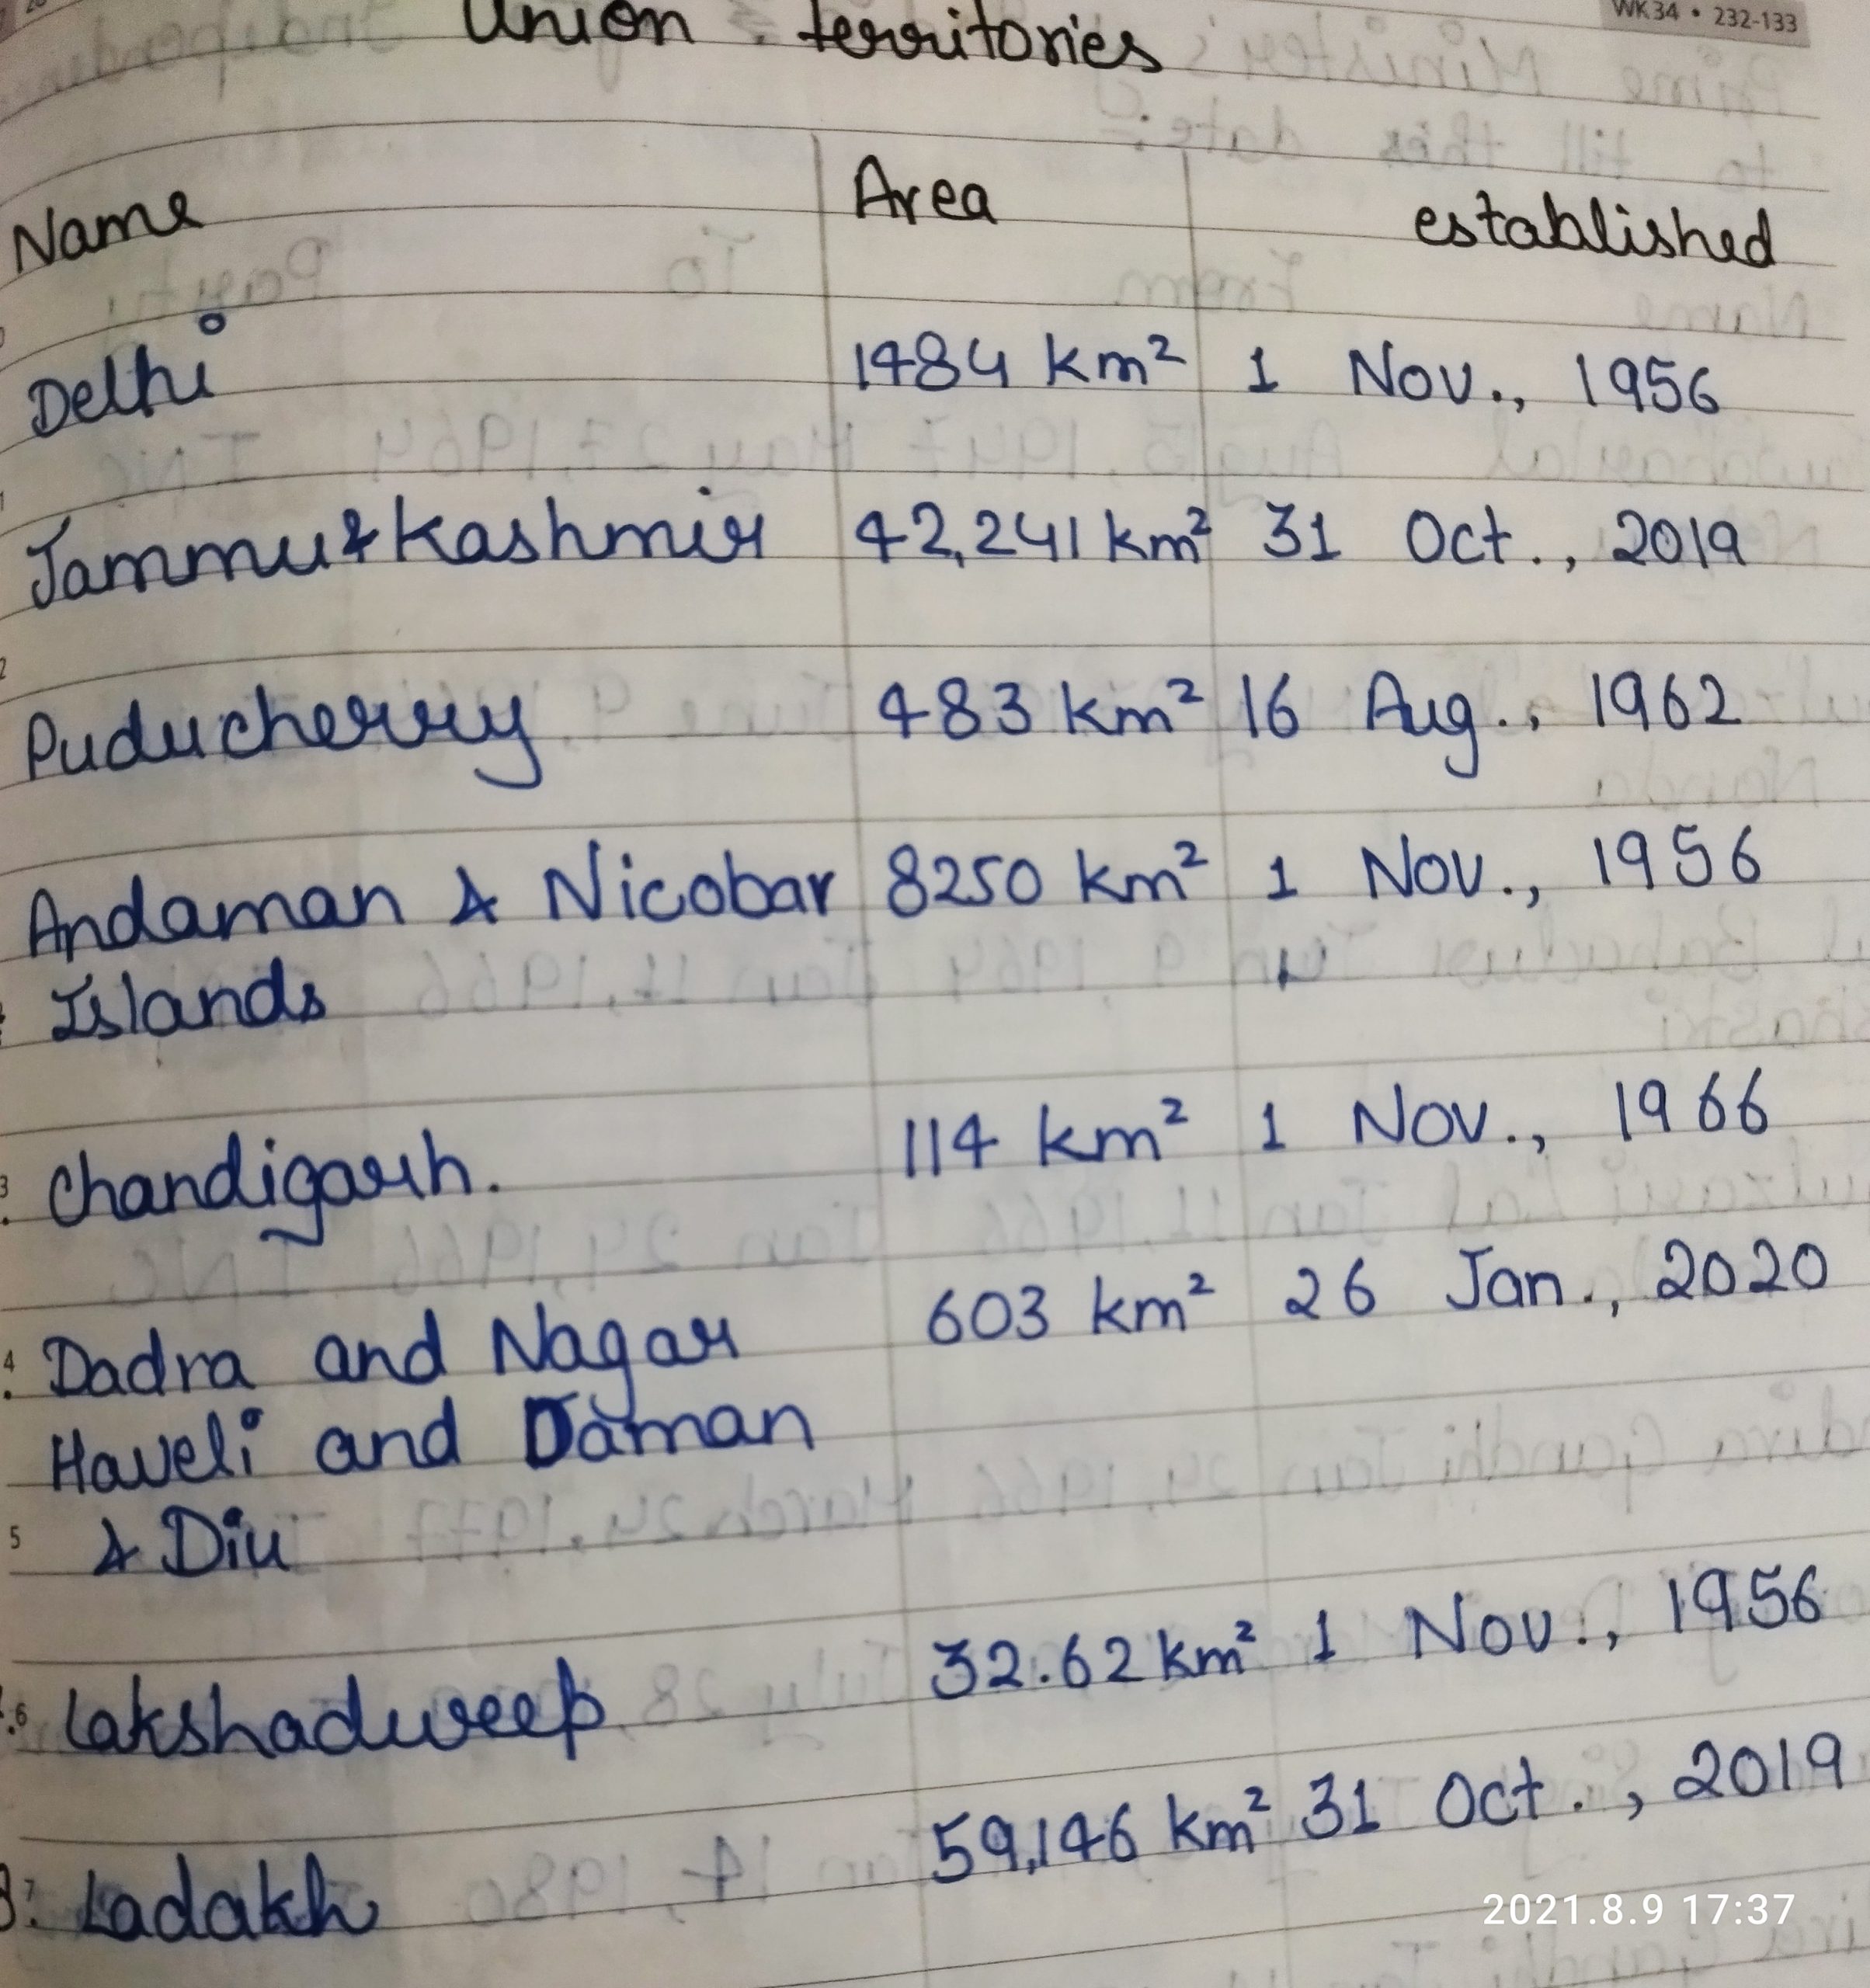 WK34 • 232-133
Union territories
Name Area established
Delhi 1484 km² 1 Nov., 1956
Jammu & Kashmir 42,241 km² 31 Oct., 2019
Puducherry 483 km² 16 Aug., 1962
Andaman & Nicobar 8250 km² 1 Nov., 1956
Islands
3 Chandigarh. 114 km² 1 Nov., 1966
4 Dadra and Nagar 603 km² 26 Jan., 2020
Haveli and Daman
5 & Diu
6 Lakshadweep 32.62 km² 1 Nov., 1956
7 Ladakh 59,146 km² 31 Oct., 2019
2021.8.9 17:37